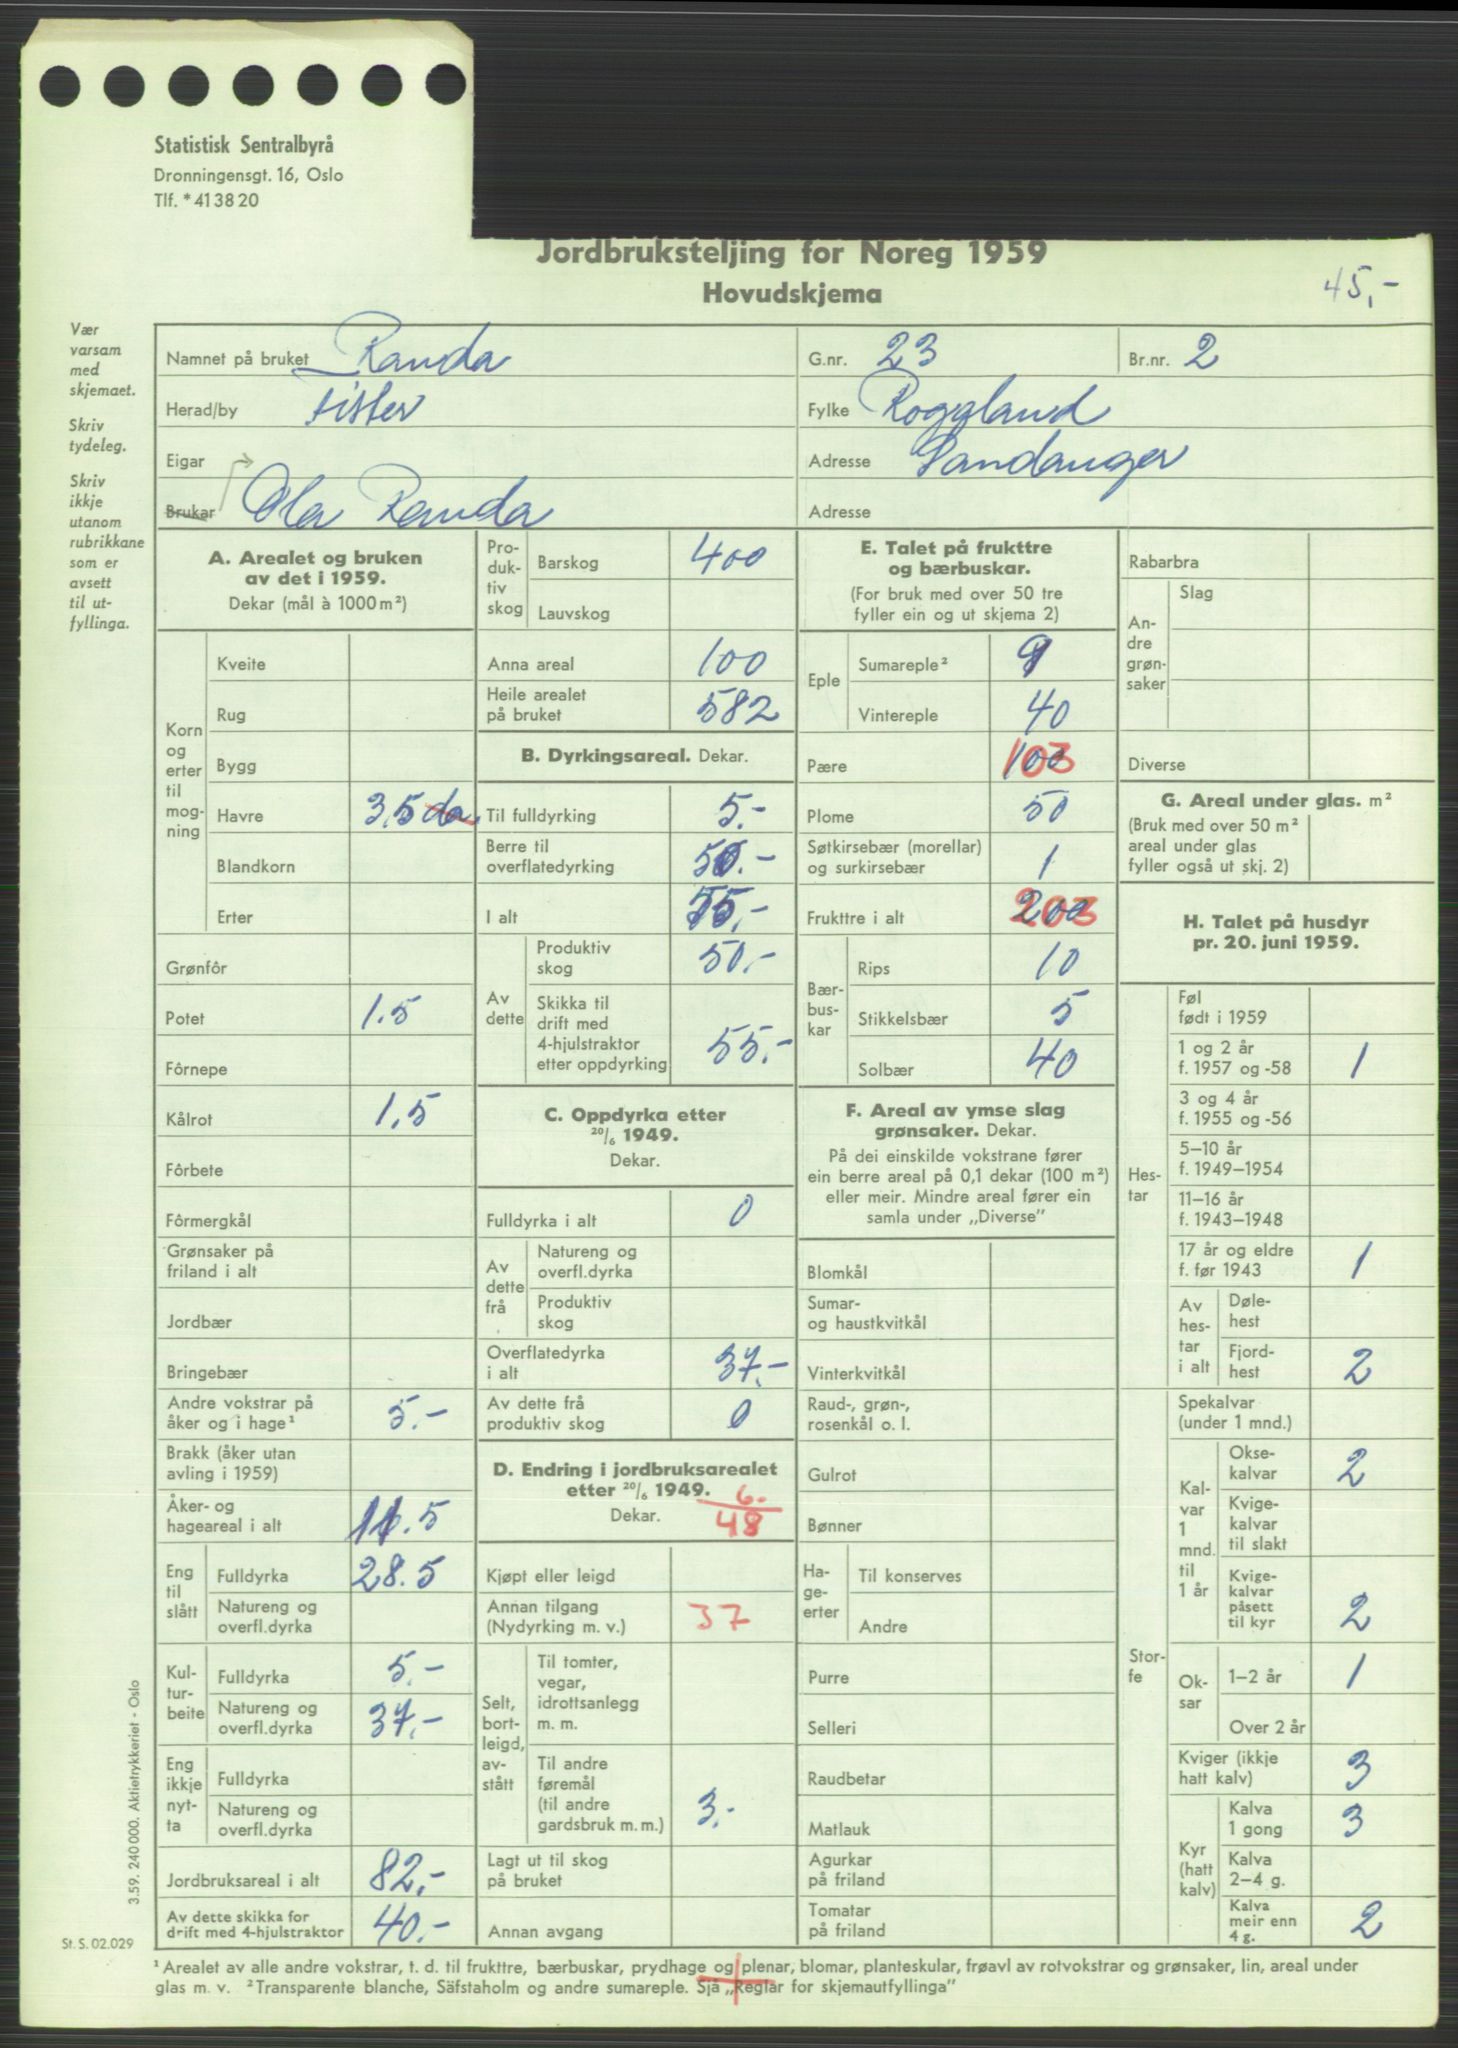 Statistisk Sentralbyrå
Dronningensgt. 16, Oslo
Tlf. *41 38 20
Jordbruksteljing for Noreg 1959
Hovudskjema
45,-
Vær
varsam
med
skjemaet.
Skriv
tydeleg.
Skriv
ikkje
utanom
rubrikkane
som er
avsett
til ut-
fyllinga.
Namnet på bruket Randa G.nr. 23 Br.nr. 2
Herad/by Fister Fylke Rogaland
Eigar Adresse Sandanger
Brukar Ola Randa Adresse
A. Arealet og bruken
av det i 1959.
Dekar (mål à 1000 m²)
Korn
og
erter
til
mog-
ning
Kveite
Rug
Bygg
Havre 3,5 da
Blandkorn
Erter
Grønfôr
Potet 1.5
Fôrnepe
Kålrot 1,5
Fôrbete
Fôrmergkål
Grønsaker på
friland i alt
Jordbær
Bringebær
Andre vokstrar på
åker og i hage¹ 5.-
Brakk (åker utan
avling i 1959)
Åker- og
hageareal i alt 11.5
Eng
til
slått
Fulldyrka 28.5
Natureng og
overfl.dyrka
Kul-
tur-
beite
Fulldyrka 5.-
Natureng og
overfl.dyrka 37.-
Eng
ikkje
nyt-
ta
Fulldyrka
Natureng og
overfl.dyrka
Jordbruksareal i alt 82,-
Av dette skikka for
drift med 4-hjulstraktor 40.-
Pro-
duk-
tiv
skog
Barskog 400
Lauvskog
Anna areal 100
Heile arealet
på bruket 582
B. Dyrkingsareal. Dekar.
Til fulldyrking 5.-
Berre til
overflatedyrking 50.-
I alt 55.-
Av
dette
Produktiv
skog 50.-
Skikka til
drift med
4-hjulstraktor
etter oppdyrking 55.-
C. Oppdyrka etter
20/6 1949.
Dekar.
Fulldyrka i alt 0
Av
dette
frå
Natureng og
overfl.dyrka
Produktiv
skog
Overflatedyrka
i alt 37.-
Av dette frå
produktiv skog 0
D. Endring i jordbruksarealet
etter 20/6 1949.
Dekar.
6.
48
Kjøpt eller leigd
Annan tilgang
(Nydyrking m. v.) 37
Selt,
bort-
leigd,
av-
stått
Til tomter,
vegar,
idrottsanlegg
m. m.
Til andre
føremål
(til andre
gardsbruk m. m.) 3.-
Lagt ut til skog
på bruket
Annan avgang
E. Talet på frukttre
og bærbuskar.
(For bruk med over 50 tre
fyller ein og ut skjema 2)
Eple
Sumareple² 9
Vintereple 40
Pære 103
Plome 50
Søtkirsebær (morellar)
og surkirsebær 1
Frukttre i alt 203
Bær-
bus-
kar
Rips 10
Stikkelsbær 5
Solbær 40
F. Areal av ymse slag
grønsaker. Dekar.
På dei einskilde vokstrane fører
ein berre areal på 0,1 dekar (100 m²)
eller meir. Mindre areal fører ein
samla under „Diverse”
Blomkål
Sumar-
og haustkvitkål
Vinterkvitkål
Raud-, grøn-,
rosenkål o. l.
Gulrot
Bønner
Ha-
ge-
erter
Til konserves
Andre
Purre
Selleri
Raudbetar
Matlauk
Agurkar
på friland
Tomatar
på friland
Rabarbra
An-
dre
grøn-
saker
Slag
Diverse
G. Areal under glas. m²
(Bruk med over 50 m²
areal under glas
fyller også ut skj. 2)
H. Talet på husdyr
pr. 20. juni 1959.
Hes-
tar
Føl
født i 1959
1 og 2 år
f. 1957 og -58 1
3 og 4 år
f. 1955 og -56
5–10 år
f. 1949–1954
11–16 år
f. 1943–1948
17 år og eldre
f. før 1943 1
Av
hes-
tar
i alt
Døle-
hest
Fjord-
hest 2
Stor-
fe
Spekalvar
(under 1 mnd.)
Kal-
var
1
mnd.
til
1 år
Okse-
kalvar 2
Kvige-
kalvar
til slakt
Kvige-
kalvar
påsett
til kyr 2
Ok-
sar
1–2 år 1
Over 2 år
Kviger (ikkje
hatt kalv) 3
Kyr
(hatt
kalv)
Kalva
1 gong 3
Kalva
2–4 g.
Kalva
meir enn
4 g. 2
3.59. 240 000. Aktietrykkeriet - Oslo
St. S. 02.029
¹ Arealet av alle andre vokstrar, t. d. til frukttre, bærbuskar, prydhage og plenar, blomar, planteskular, frøavl av rotvokstrar og grønsaker, lin, areal under
glas m. v. ² Transparente blanche, Säfstaholm og andre sumareple. Sjå „Reglar for skjemautfyllinga”